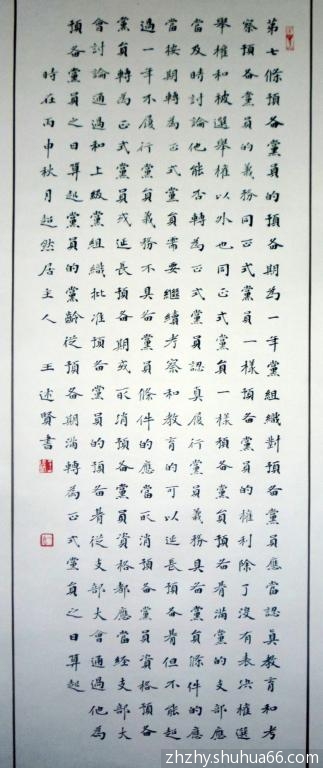 第七條預备黨員的預备期為一年黨組織對預备黨員應當認真教育和考
察預备黨員的義務同正式黨員一樣預备黨員的權利除了沒有表决權選
舉權和被選舉權以外也同正式黨員一樣預备黨員預备期滿黨的支部應
當及時討論他能否轉為正式黨員認真履行黨員義務具备黨員條件的應
當按期轉為正式黨員需要繼續考察和教育的可以延長預备期但不能超
過一年不履行黨員義務不具备黨員條件的應當取消預备黨員資格預备
黨員轉為正式黨員或延長預备期或取消預备黨員資格都應當經支部大
會討論通過和上級黨組織批准預备黨員的預备期從支部大會通過他為
預备黨員之日算起黨員的黨齡從預备期滿轉為正式黨員之日算起
時在丙申秋月超然居主人 王述賢書
zhzhy.shuhua66.com